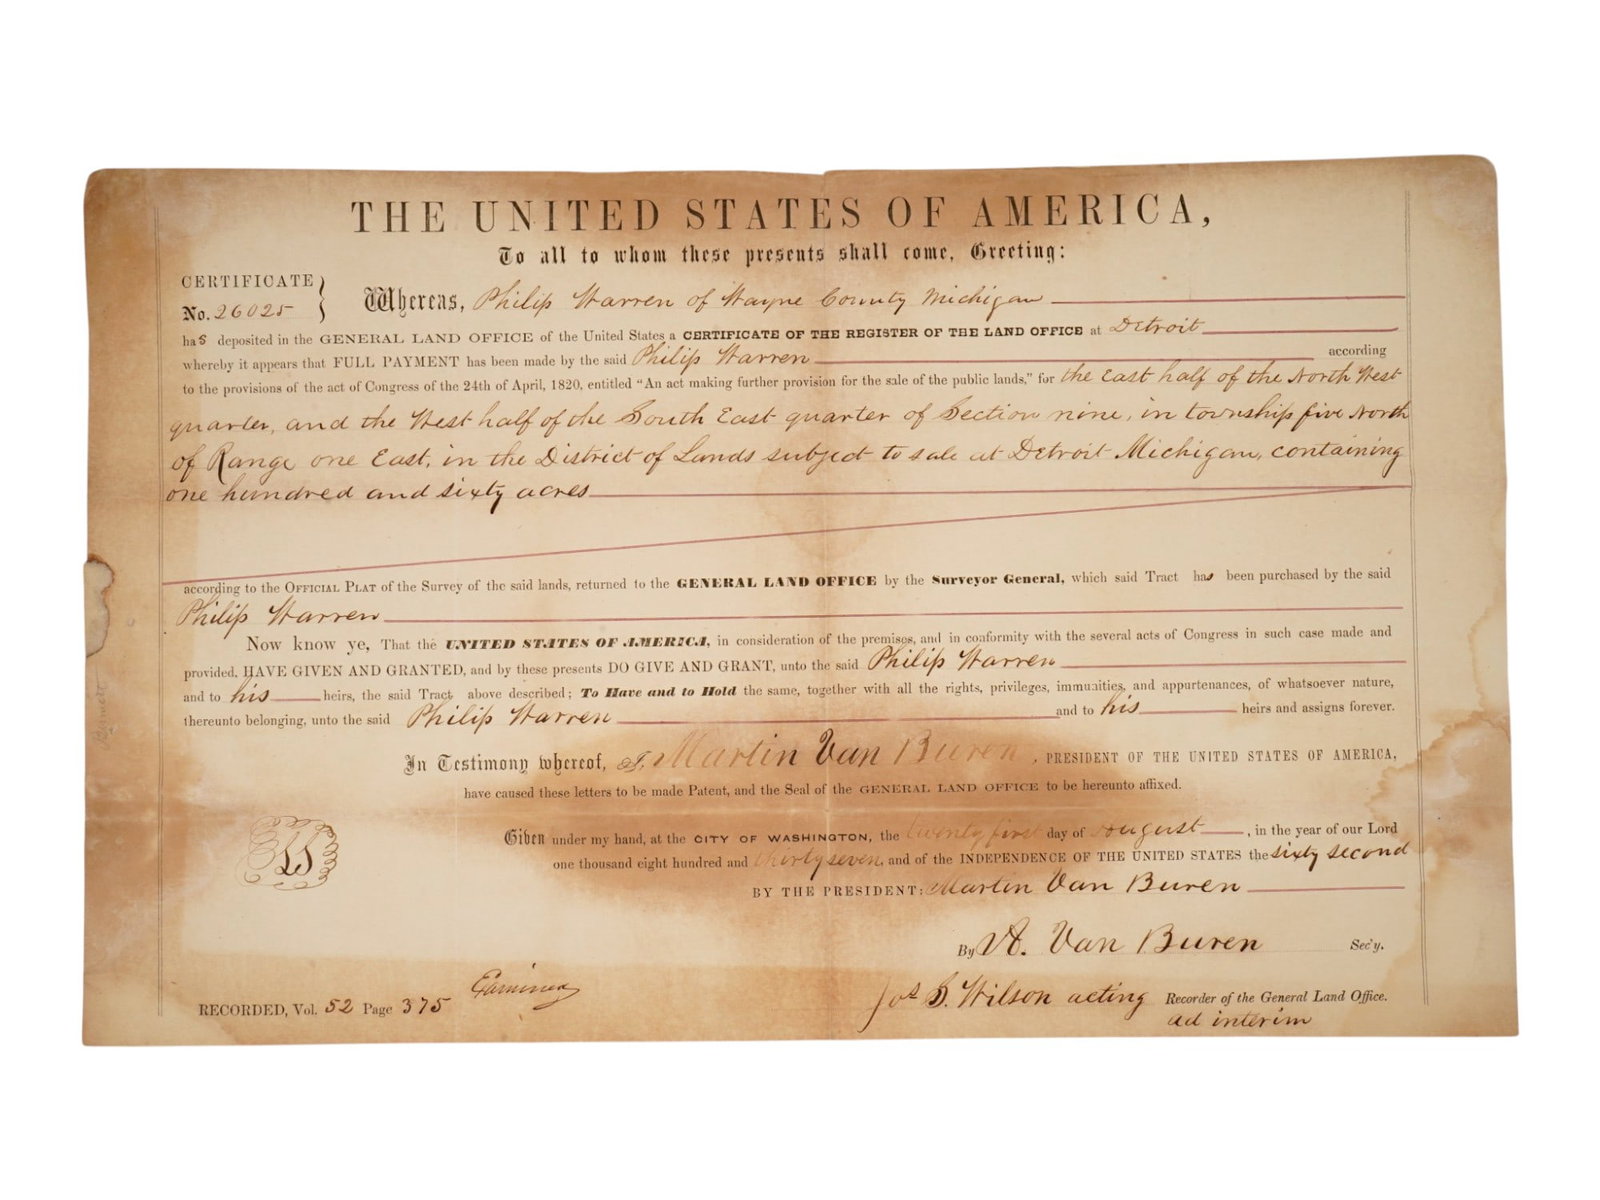 THE UNITED STATES OF AMERICA,
To all to whom these presents shall come, Greeting:
CERTIFICATE
No. 26025
Whereas, Philip Warren of Wayne County Michigan
has deposited in the GENERAL LAND OFFICE of the United States a CERTIFICATE OF THE REGISTER OF THE LAND OFFICE at Detroit
whereby it appears that FULL PAYMENT has been made by the said Philip Warren according
to the provisions of the act of Congress of the 24th of April, 1820, entitled "An act making further provision for the sale of the public lands," for the East half of the North West
quarter, and the West half of the South East quarter of Section nine, in township five North
of Range one East, in the District of Lands subject to sale at Detroit Michigan, containing
one hundred and sixty acres
according to the OFFICIAL PLAT of the Survey of the said lands, returned to the GENERAL LAND OFFICE by the Surveyor General, which said Tract has been purchased by the said
Philip Warren
Now know ye, That the UNITED STATES OF AMERICA, in consideration of the premises, and in conformity with the several acts of Congress in such case made and
provided, HAVE GIVEN AND GRANTED, and by these presents DO GIVE AND GRANT, unto the said Philip Warren
and to his heirs, the said Tract above described; To Have and to Hold the same, together with all the rights, privileges, immunities, and appurtenances, of whatsoever nature,
thereunto belonging, unto the said Philip Warren and to his heirs and assigns forever.
In Testimony whereof, I, Martin Van Buren, PRESIDENT OF THE UNITED STATES OF AMERICA,
have caused these letters to be made Patent, and the Seal of the GENERAL LAND OFFICE to be hereunto affixed.
Given under my hand, at the CITY OF WASHINGTON, the twenty first day of August, in the year of our Lord
one thousand eight hundred and thirty seven, and of the INDEPENDENCE OF THE UNITED STATES the sixty second
BY THE PRESIDENT: Martin Van Buren
LS
By A. Van Buren Sec'y.
RECORDED, Vol. 52 Page 375
Jos. S. Wilson acting Recorder of the General Land Office.
ad interim